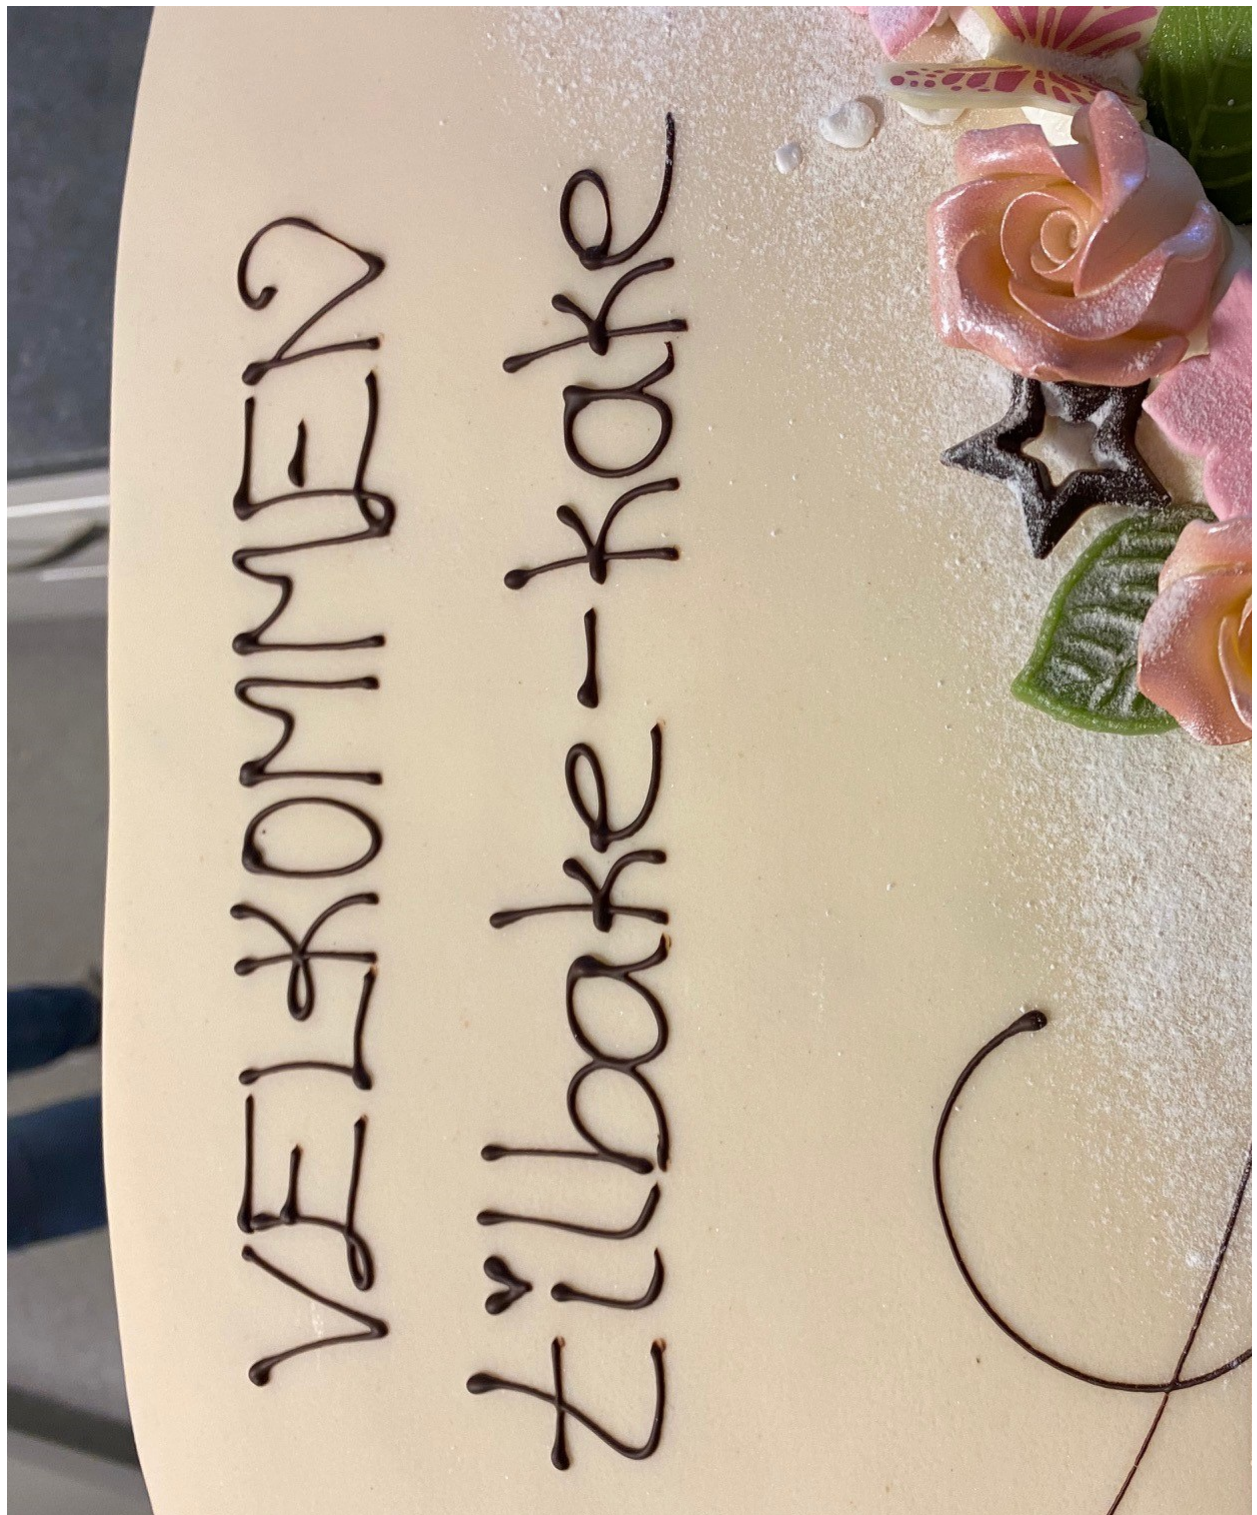 VELKOMMEN
tilbake-kake